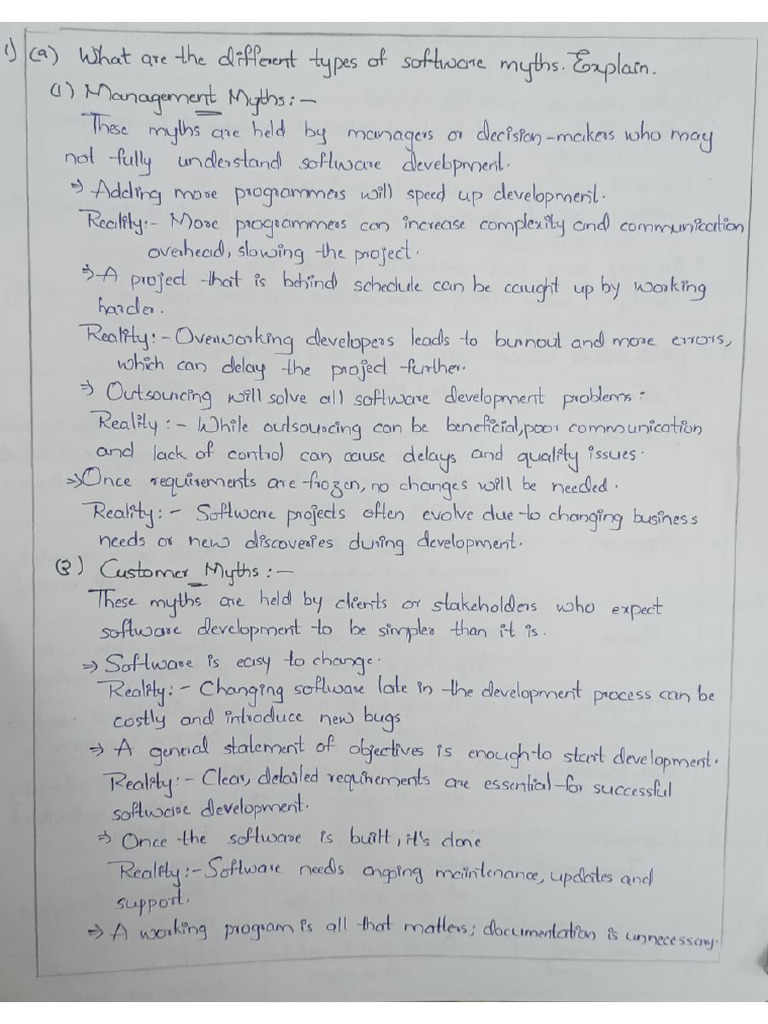 1) (a) What are the different types of software myths. Explain.
(1) Management Myths:-
These myths are held by managers or decision-makers who may
not fully understand software development.
⇒ Adding more programmers will speed up development.
Reality:- More programmers can increase complexity and communication
overhead, slowing the project.
⇒ A project that is behind schedule can be caught up by working
harder.
Reality:- Overworking developers leads to burnout and more errors,
which can delay the project further.
⇒ Outsourcing will solve all software development problems:
Reality:- While outsourcing can be beneficial, poor communication
and lack of control can cause delays and quality issues.
⇒ Once requirements are frozen, no changes will be needed.
Reality:- Software projects often evolve due to changing business
needs or new discoveries during development.
(2) Customer Myths:-
These myths are held by clients or stakeholders who expect
software development to be simpler than it is.
⇒ Software is easy to change.
Reality:- Changing software late in the development process can be
costly and introduce new bugs
⇒ A general statement of objectives is enough to start development.
Reality:- Clear, detailed requirements are essential for successful
software development.
⇒ Once the software is built, it's done
Reality:- Software needs ongoing maintenance, updates and
support.
⇒ A working program is all that matters; documentation is unnecessary.